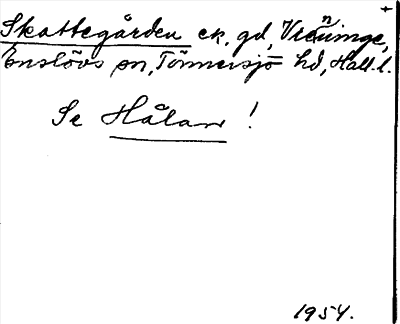 Skattegården ek. gd, Vrenninge,
Enslövs sn, Tönnersjö hd, Hall. l.
Se Hålan !
1954.